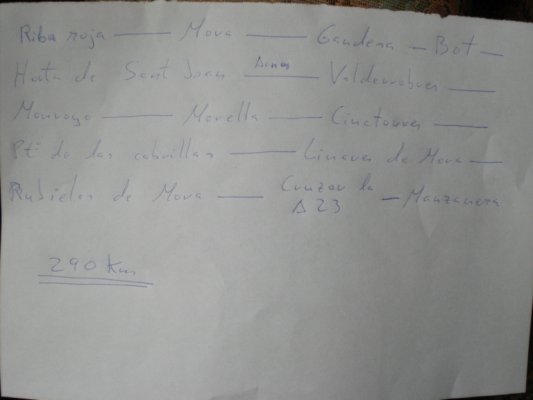 Riba roja — Mora — Gandesa — Bot —
Horta de Sant Joan — Arnes — Valderrobres —
Monroyo — Morella — Cinctorres —
Pto de las cabrillas — Linares de Mora —
Rubielos de Mora — Cruzar la A 23 — Manzanera
290 Km